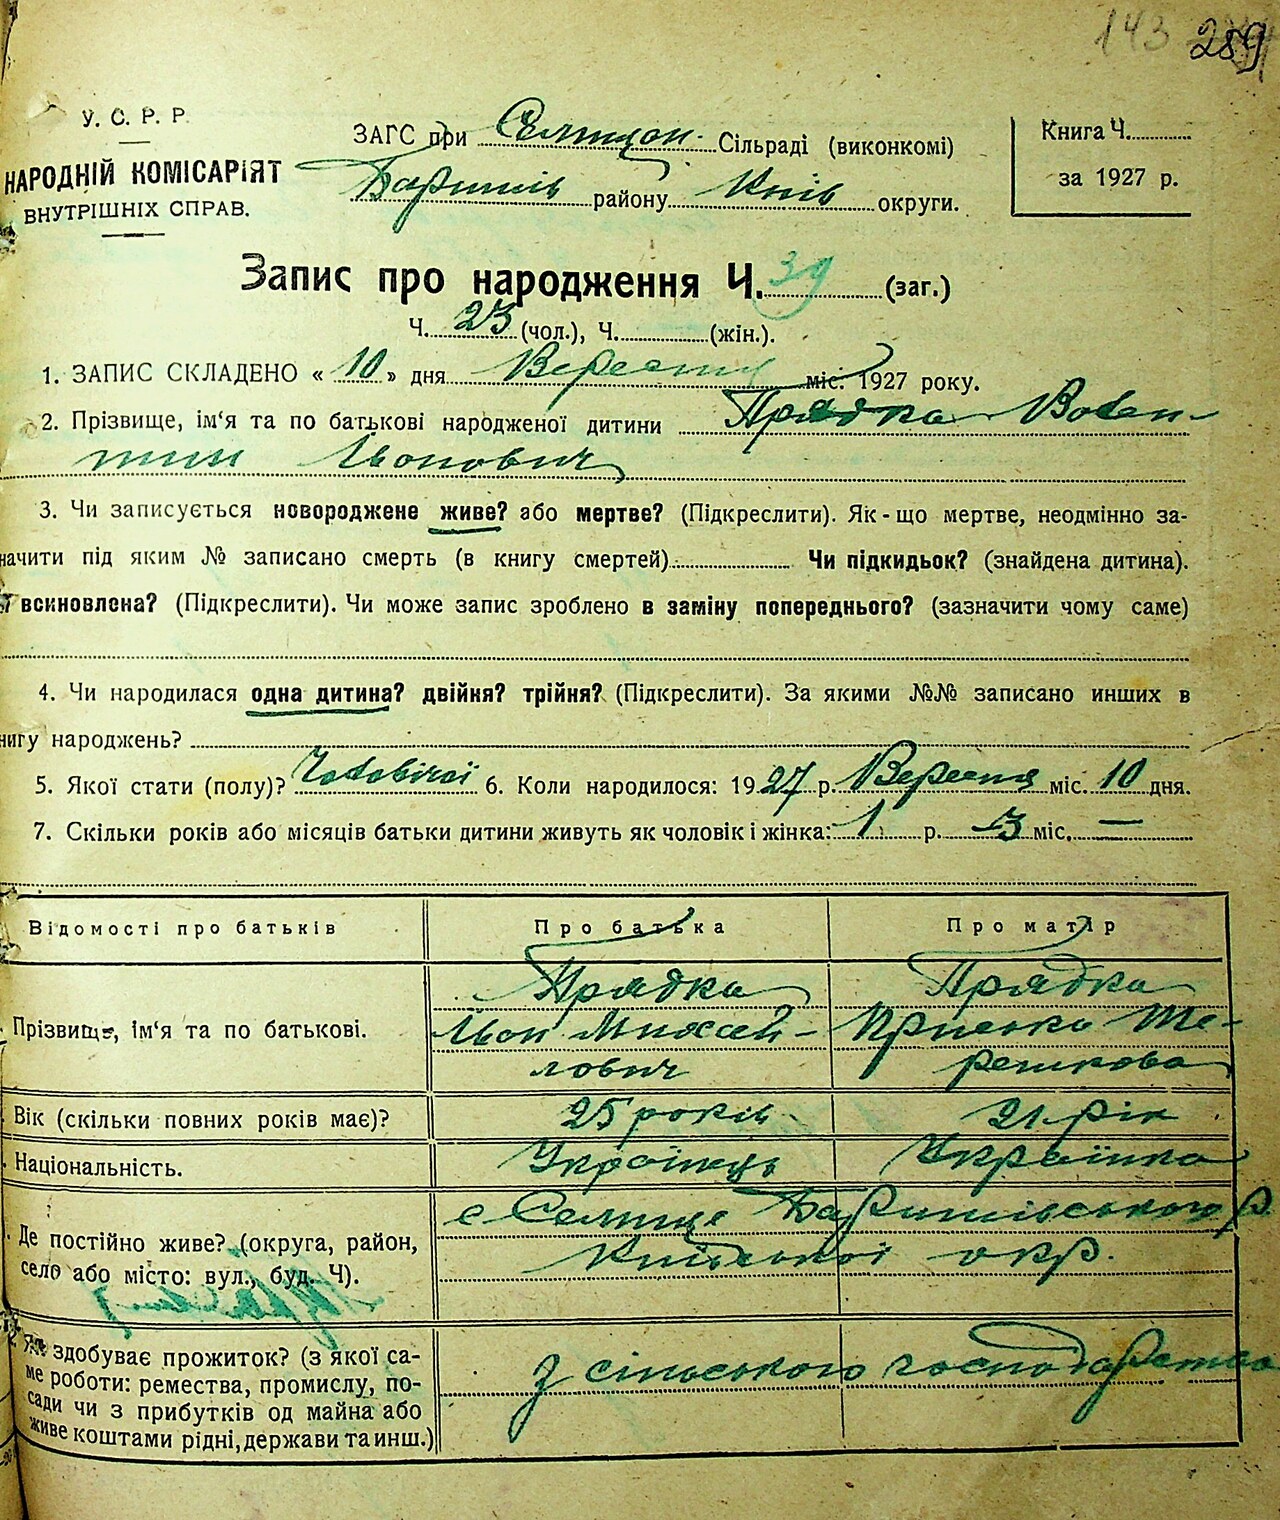 143 289
У. С. Р. Р.
НАРОДНІЙ КОМІСАРІЯТ
ВНУТРІШНІХ СПРАВ.
ЗАГС при Селищан. Сільраді (виконкомі)
Баришів району Київ округи.
Книга Ч.
за 1927 р.
Запис про народження Ч. 39 (заг.)
Ч. 23 (чол.), Ч. (жін.).
1. ЗАПИС СКЛАДЕНО « 10 » дня Вересня міс. 1927 року.
2. Прізвище, ім‘я та по батькові народженої дитини Прядка Вален-
тин Іванович
3. Чи записується новороджене живе? або мертве? (Підкреслити). Як-що мертве, неодмінно за-
начити під яким № записано смерть (в книгу смертей) Чи підкидьок? (знайдена дитина).
всиновлена? (Підкреслити). Чи може запис зроблено в заміну попереднього? (зазначити чому саме)
4. Чи народилася одна дитина? двійня? трійня? (Підкреслити). За якими №№ записано инших в
нигу народжень?
5. Якої стати (полу)? Чоловічої 6. Коли народилося: 1927 р. Вересня міс. 10 дня.
7. Скільки років або місяців батьки дитини живуть як чоловік і жінка: 1 р. 3 міс. —
Відомості про батьків Про батька Про матір
Прізвище, ім‘я та по батькові.
Прядка
Іван Михай-
лович
Прядка
Приська Те-
решкова
Вік (скільки повних років має)? 25 років 21 рік
Національність. Українець Українка
Де постійно живе? (округа, район,
село або місто: вул., буд. Ч).
с Селище Баришівського р.
Київської окр.
Як здобуває прожиток? (з якої са-
ме роботи: ремества, промислу, по-
сади чи з прибутків од майна або
живе коштами рідні, держави та инш.)
З сільського господарства